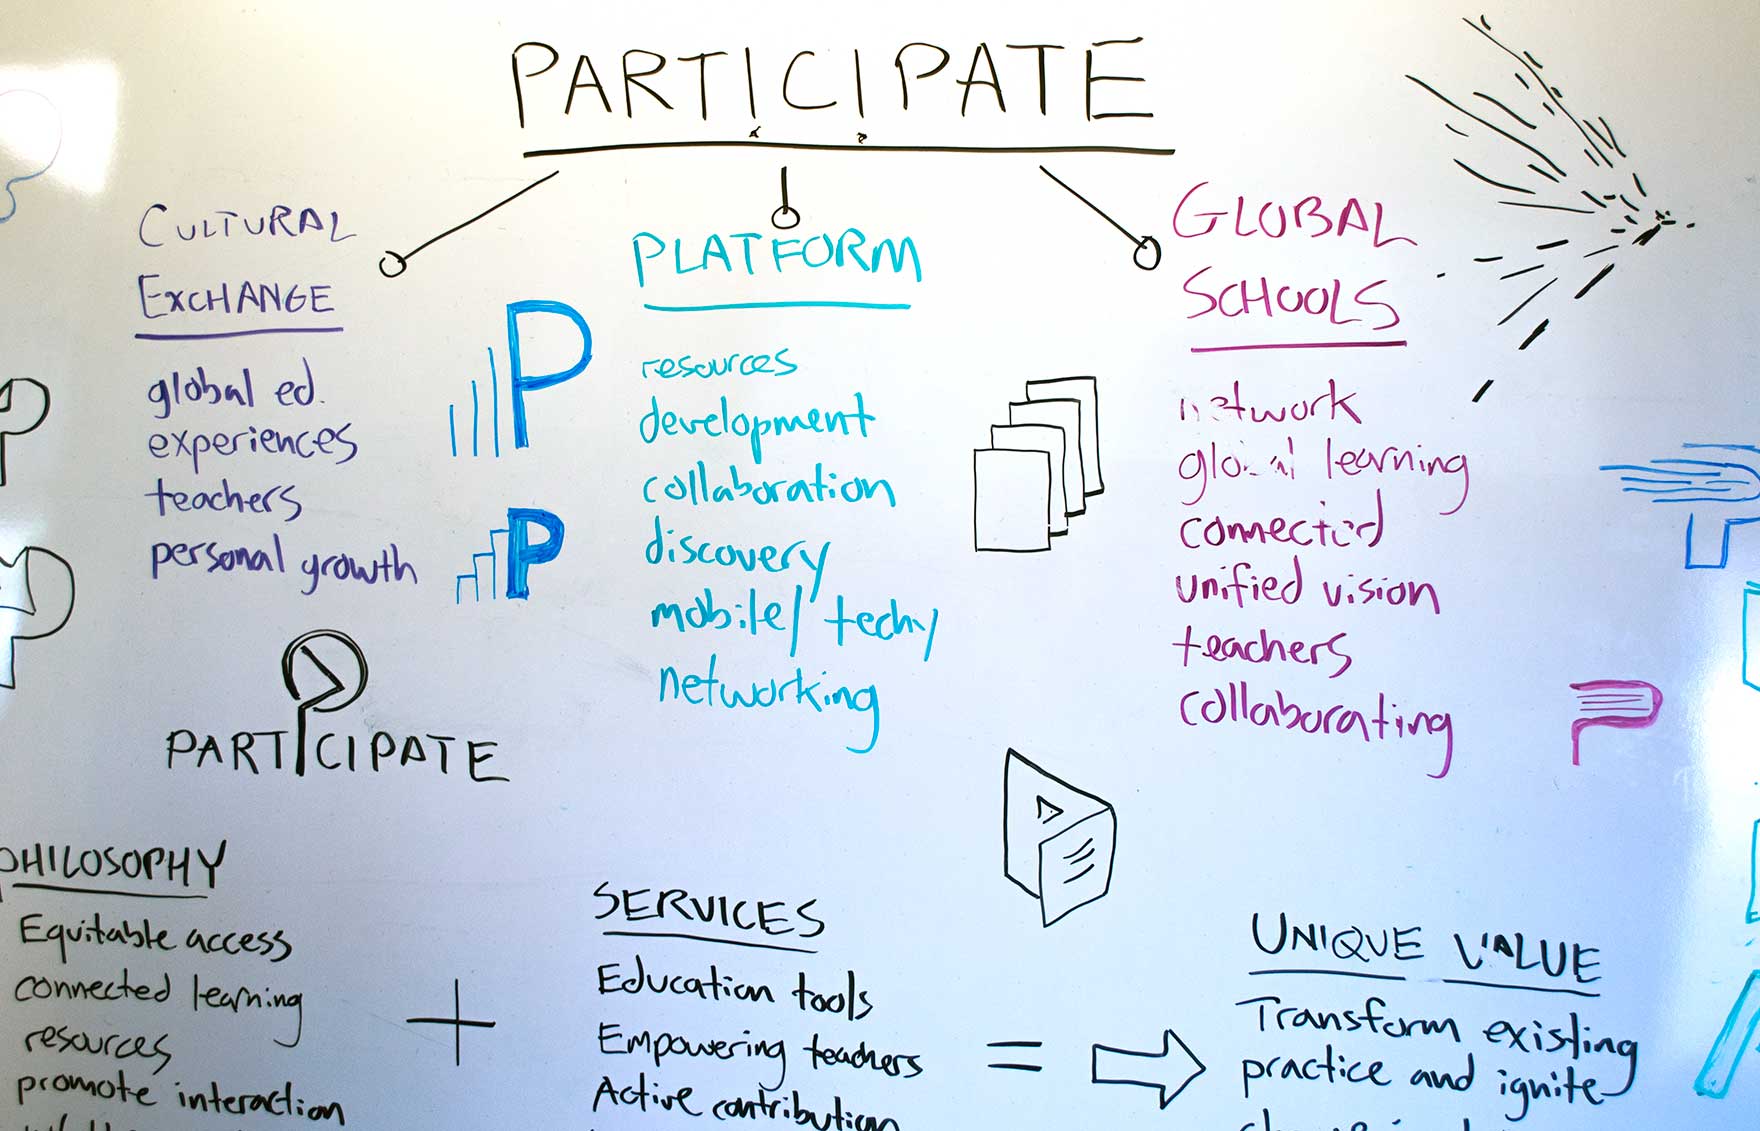 PARTICIPATE
CULTURAL
EXCHANGE
global ed.
experiences
teachers
personal growth
P
P
PLATFORM
resources
development
collaboration
discovery
mobile/techy
networking
GLOBAL
SCHOOLS
network
global learning
connected
unified vision
teachers
collaborating
PARTICIPATE
PHILOSOPHY
Equitable access
connected learning
resources
promote interaction
+
SERVICES
Education tools
Empowering teachers
Active contribution
=
UNIQUE VALUE
Transform existing
practice and ignite